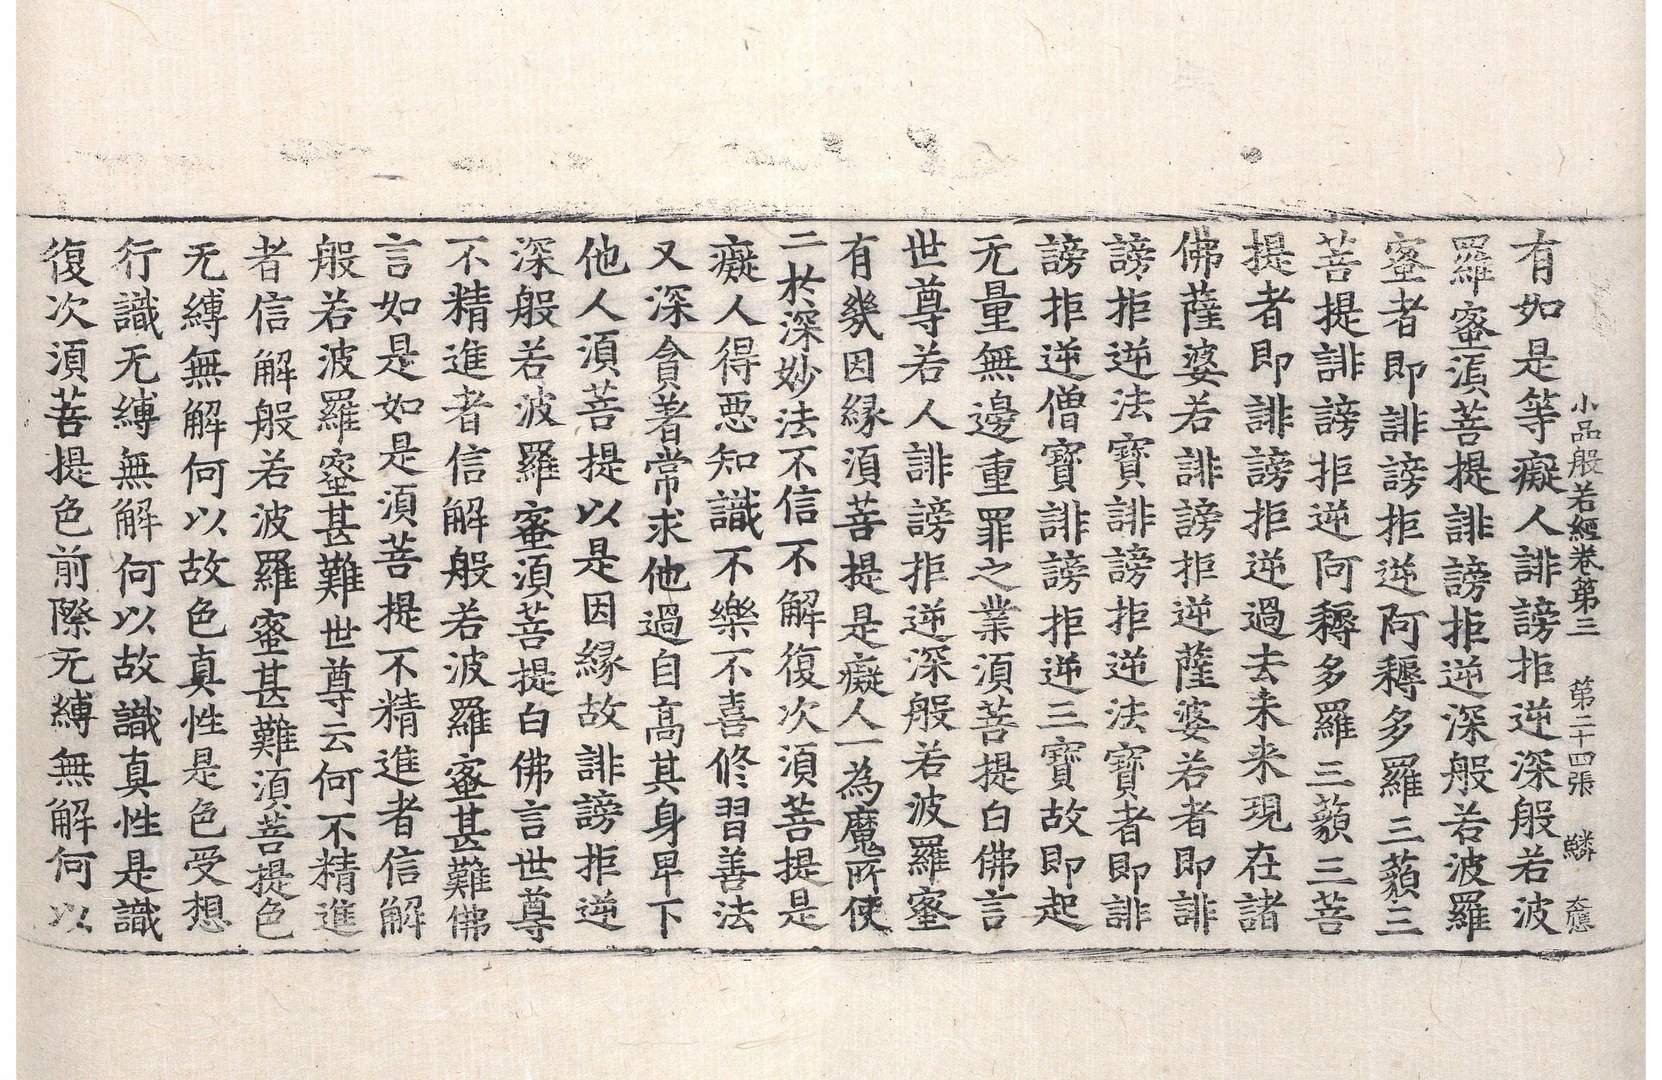 小品般若經卷第三 第二十四張 鱗
有如是等癡人誹謗拒逆深般若波
羅蜜湏菩提誹謗拒逆深般若波羅
蜜者即誹謗拒逆阿耨多羅三藐三
菩提誹謗拒逆阿耨多羅三藐三菩
提者即誹謗拒逆過去未来現在諸
佛薩婆若誹謗拒逆薩婆若者即誹
謗拒逆法寶誹謗拒逆法寶者即誹
謗拒逆僧寶誹謗拒逆三寶故即起
无量無邊重罪之業湏菩提白佛言
世尊若人誹謗拒逆深般若波羅蜜
有幾因緣湏菩提是癡人一為魔所使
二於深妙法不信不解復次湏菩提是
癡人得惡知識不樂不喜修習善法
又深貪著常求他過自高其身卑下
他人湏菩提以是因緣故誹謗拒逆
深般若波羅蜜湏菩提白佛言世尊
不精進者信解般若波羅蜜甚難佛
言如是如是湏菩提不精進者信解
般若波羅蜜甚難世尊云何不精進
者信解般若波羅蜜甚難湏菩提色
无縛無解何以故色真性是色受想
行識无縛無解何以故識真性是識
復次湏菩提色前際无縛無解何以